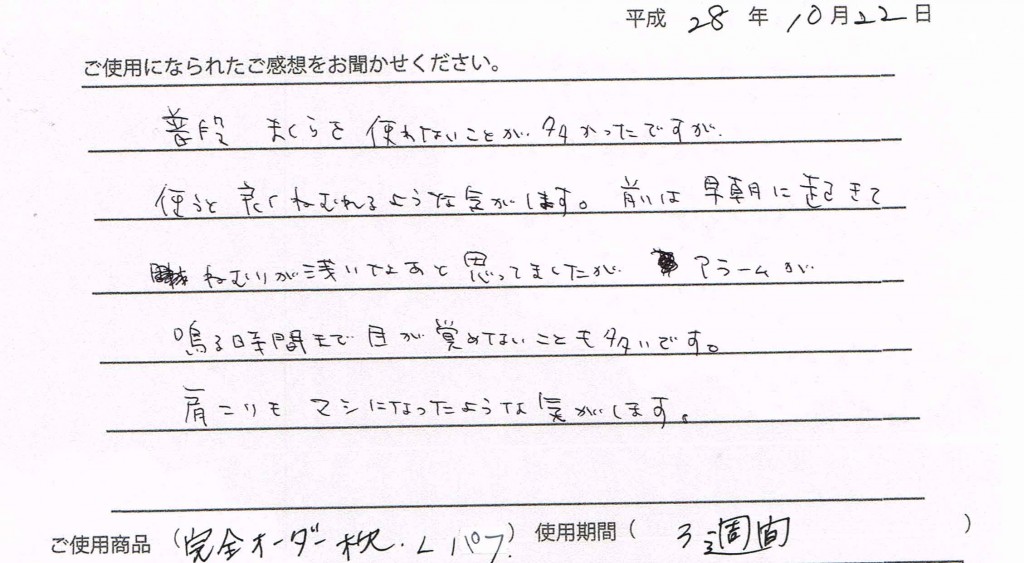 平成 28 年 10月22日
ご使用になられたご感想をお聞かせください。
普段 まくらを 使わないことが 多かったですが、
使うと 良くねむれるような気がします。前は 早朝に起きて
ねむりが浅いなあと 思ってましたが アラームが
鳴る時間まで 目が覚めないことも多いです。
肩こりも マシになったような気がします。
ご使用商品 (完全オーダー枕・L パフ) 使用期間 ( 3週間 )